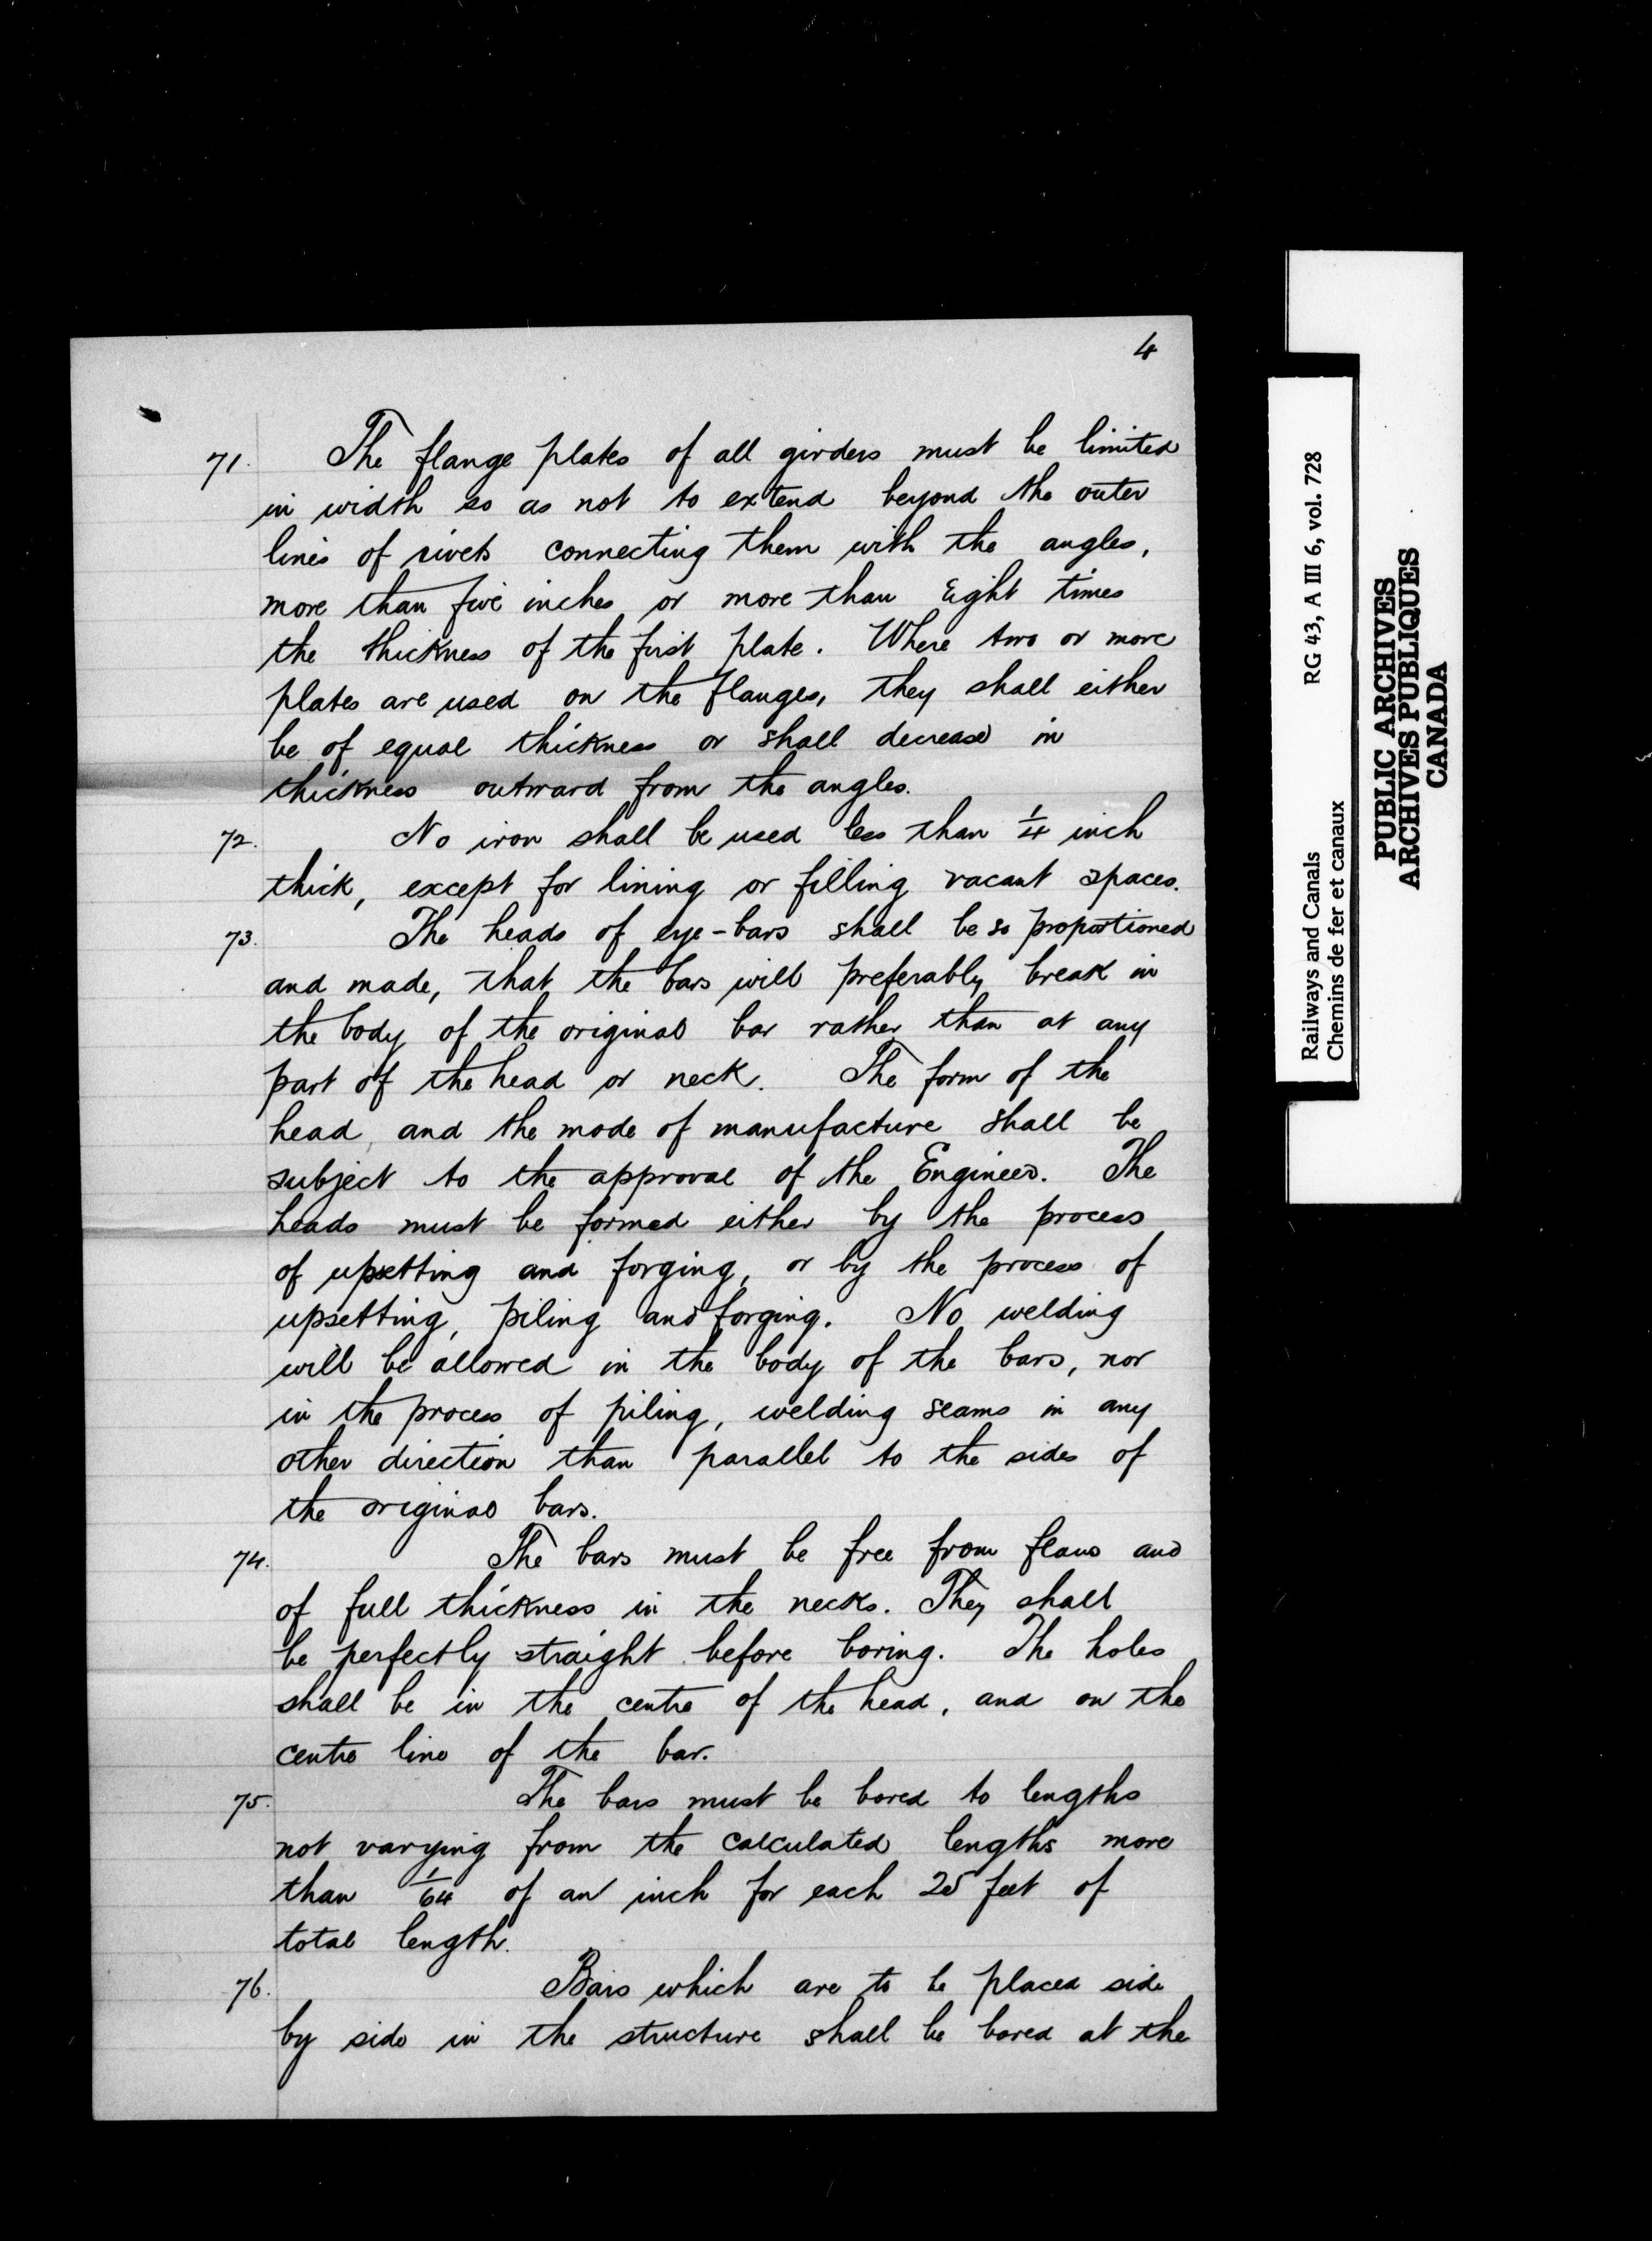 4
71. The flange plates of all girders must be limited
in width so as not to extend beyond the outer
lines of rivets connecting them with the angles,
more than five inches or more than Eight times
the thickness of the first plate. Where two or more
plates are used on the flanges, they shall either
be of equal thickness or shall decrease in
thickness outward from the angles.
72. No iron shall be used less than 1/4 inch
thick, except for lining or filling vacant spaces.
73. The heads of eye-bars shall be so proportioned
and made, that the bars will preferably break in
the body of the original bar rather than at any
part of the head or neck. The form of the
head, and the mode of manufacture shall be
subject to the approval of the Engineer. The
heads must be formed either by the process
of upsetting and forging, or by the process of
upsetting, piling and forging. No welding
will be allowed in the body of the bars, nor
in the process of piling, welding seams in any
other direction than parallel to the sides of
the original bars.
74. The bars must be free from flaws and
of full thickness in the necks. They shall
be perfectly straight before boring. The holes
shall be in the centre of the head, and on the
centre line of the bar.
75. The bars must be bored to lengths
not varying from the calculated lengths more
than 1/64 of an inch for each 25 feet of
total length.
76. Bars which are to be placed side
by side in the structure shall be bored at the
Railways and Canals RG 43, A III 6, vol. 728
Chemins de fer et canaux
PUBLIC ARCHIVES
ARCHIVES PUBLIQUES
CANADA